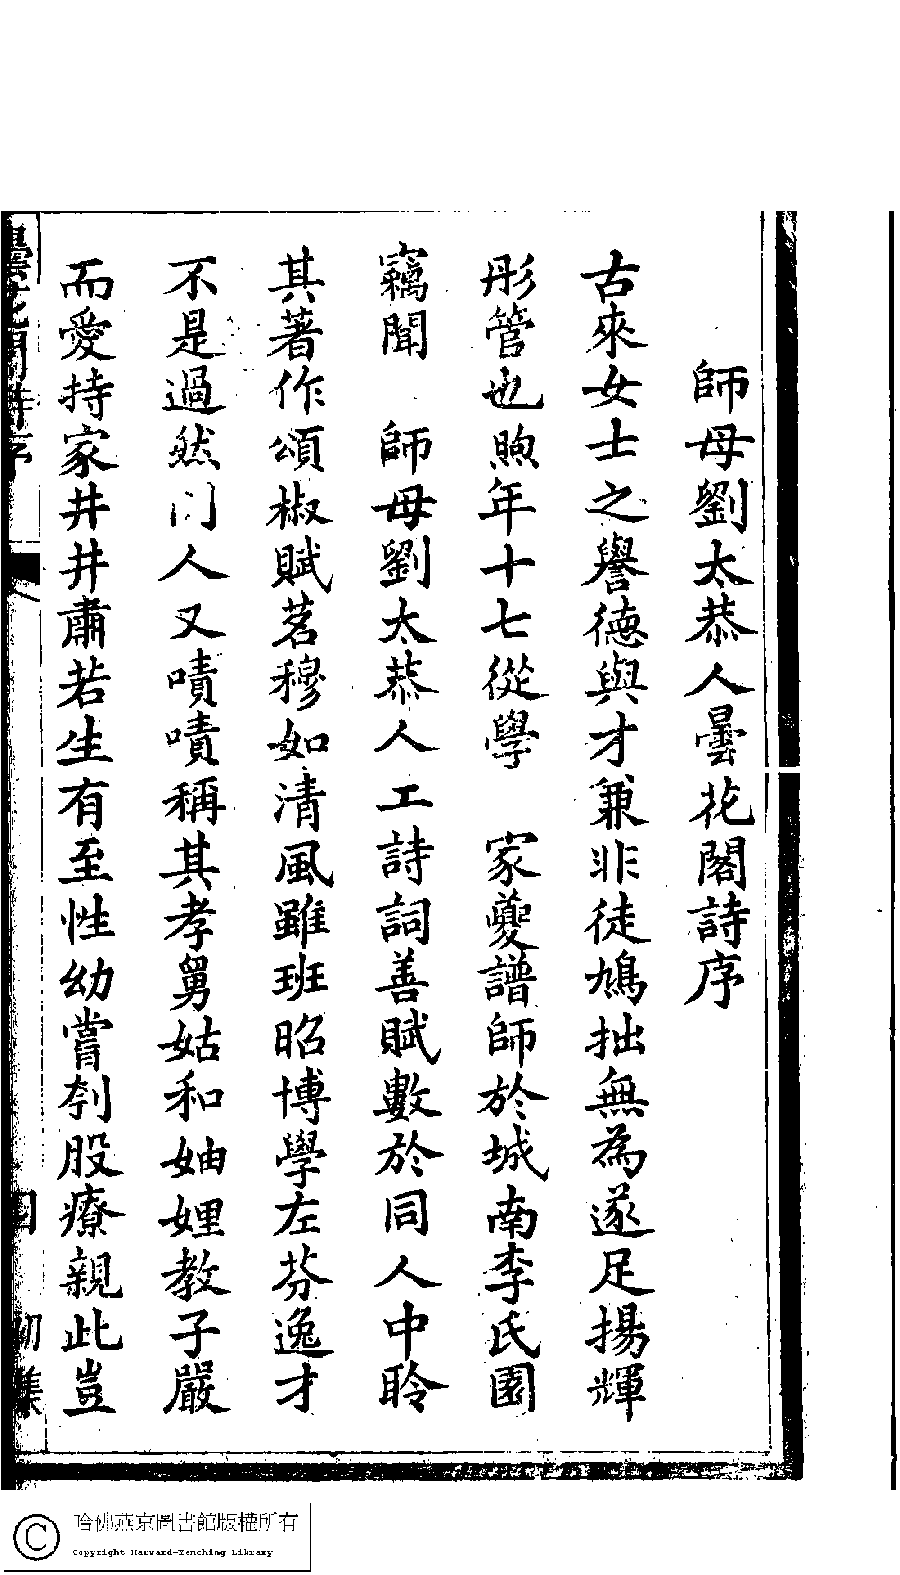 師母劉太恭人曇花閣詩序
古來女士之譽德與才兼非徒鳩拙無為遂足揚輝
彤管也煦年十七從學　家夔譜師於城南李氏園
竊聞　師母劉太恭人工詩詞善賦數於同人中聆
其著作頌椒賦茗穆如清風雖班昭博學左芬逸才
不是過然門人又嘖嘖稱其孝舅姑和妯娌教子嚴
而愛持家井井肅若生有至性幼嘗刳股療親此豈
曇花閣詩序
四
初集
哈佛燕京圖書館版權所有
Copyright Harvard-Yenching Library